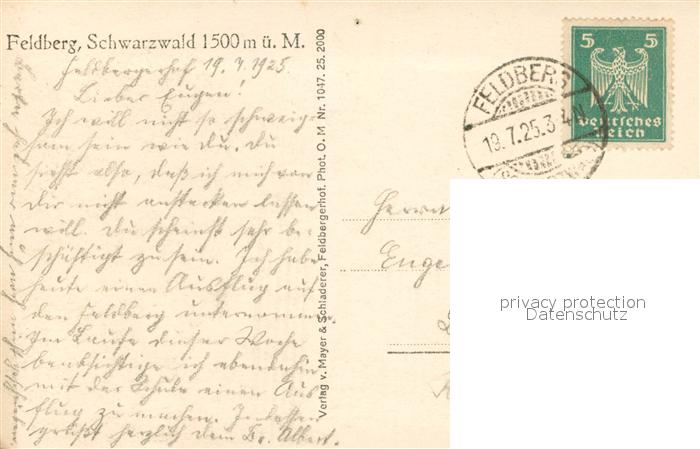 Feldberg, Schwarzwald 1500 m ü. M.
Feldbergerhof 19.7.1925.
Lieber Eugen!
Ich will nicht so schweig-
sam sein wie du. Du
siehst also, daß ich mich von
dir nicht anstecken lassen
will. Du scheinst sehr be-
schäftigt zu sein. Ich habe
heute einen Ausflug auf
den Feldberg unternommen.
Im Laufe dieser Woche
beabsichtige ich ebendahin
mit der Schule einen Aus
flug zu machen. Indessen
grüßt herzlich dein Br. Albert.
Verlag v. Mayer & Schladerer, Feldbergerhof. Phot. O. M Nr. 1047. 25. 2000
FELDBERG
19.7.25. 3-4 N
5 5
Deutsches
Reich
Herrn
Euge
privacy protection
Datenschutz